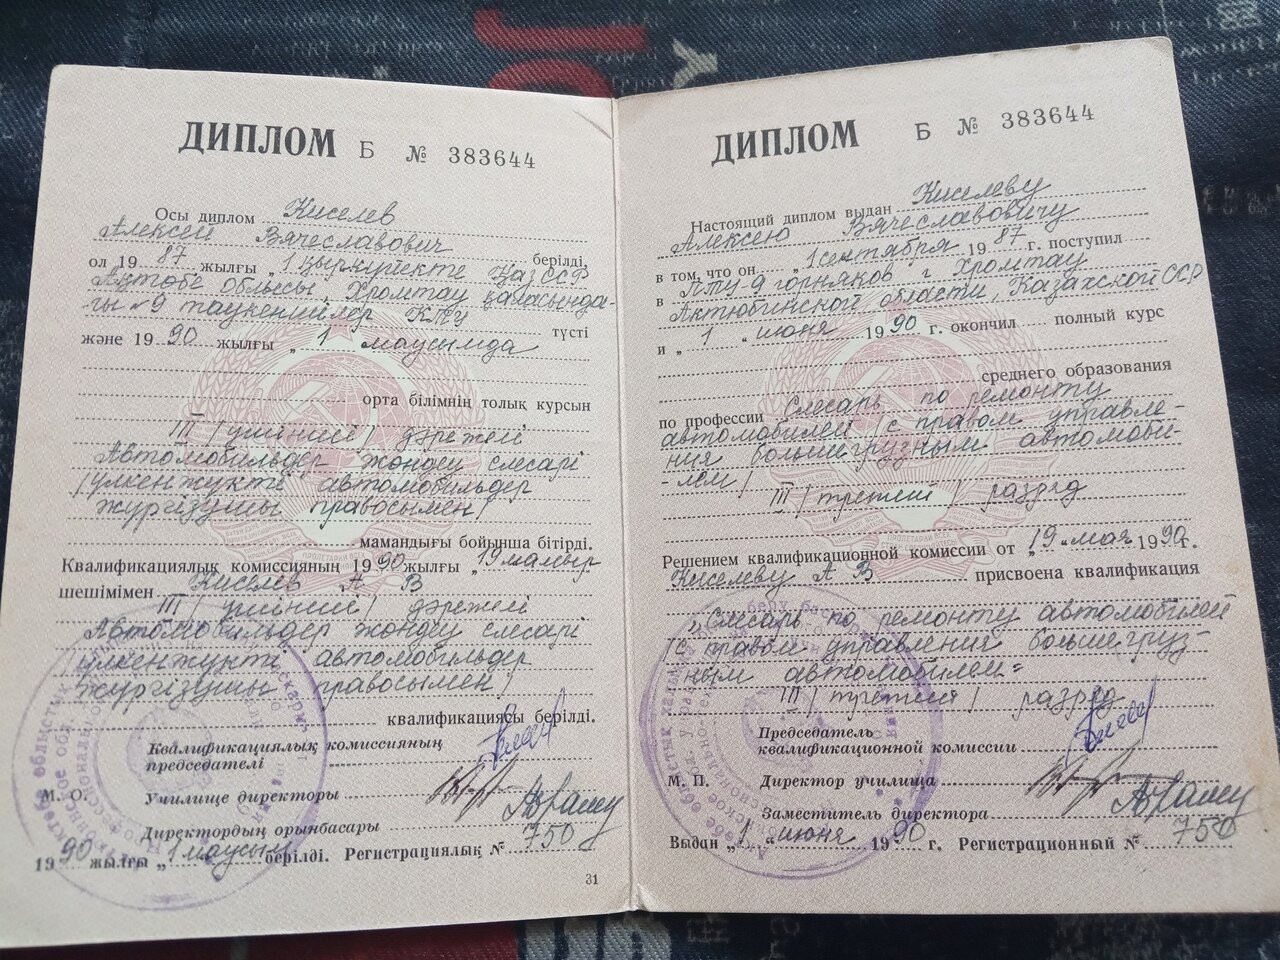 ДИПЛОМ Б № 383644
Осы диплом Киселев
Алексей Вячеславович берілді,
ол 1987 жылғы „1 қыркүйекте ҚазССР
Актобе облысы, Хромтау қаласында-
ғы №9 таукеншілер КТУ түсті
және 1990 жылғы „1 маусымда
орта білімнің толық курсын
III /үшінші/ дәрежелі
Автомобильдер жөндеу слесарі
/үлкенжүкті автомобильдер
жүргізуші правосымен/
мамандығы бойынша бітірді.
Квалификациялық комиссияның 1990 жылғы „19 мамыр
шешімімен Киселев А В
III /үшінші/ дәрежелі
Автомобильдер жөндеу слесарі
/үлкенжүкті автомобильдер
жүргізуші правосымен/
квалификациясы берілді.
Квалификациялық комиссияның
председателі
М. О. Училище директоры
Директордың орынбасары
1990 жылғы „1 маусым берілді. Регистрациялық № 750
31
ДИПЛОМ Б № 383644
Настоящий диплом выдан Киселеву
Алексею Вячеславовичу
в том, что он „1 сентября 1987 г. поступил
в ПТУ-9 горняков г Хромтау
Актюбинской области, Казахской ССР
и „1 " июня 1990 г. окончил полный курс
среднего образования
по профессии Слесарь по ремонту
автомобилей /с правом управле-
ния большегрузным автомоби-
-лем/
III /третий/ разряд
Решением квалификационной комиссии от „19 " мая 1990 г.
Киселеву А В присвоена квалификация
„Слесарь по ремонту автомобилей
/с правом управления большегруз-
ным автомобилем=
III /третий/ разряд
Председатель
квалификационной комиссии
М. П. Директор училища
Заместитель директора
Выдан „1 " июня 1990 г. Регистрационный № 750